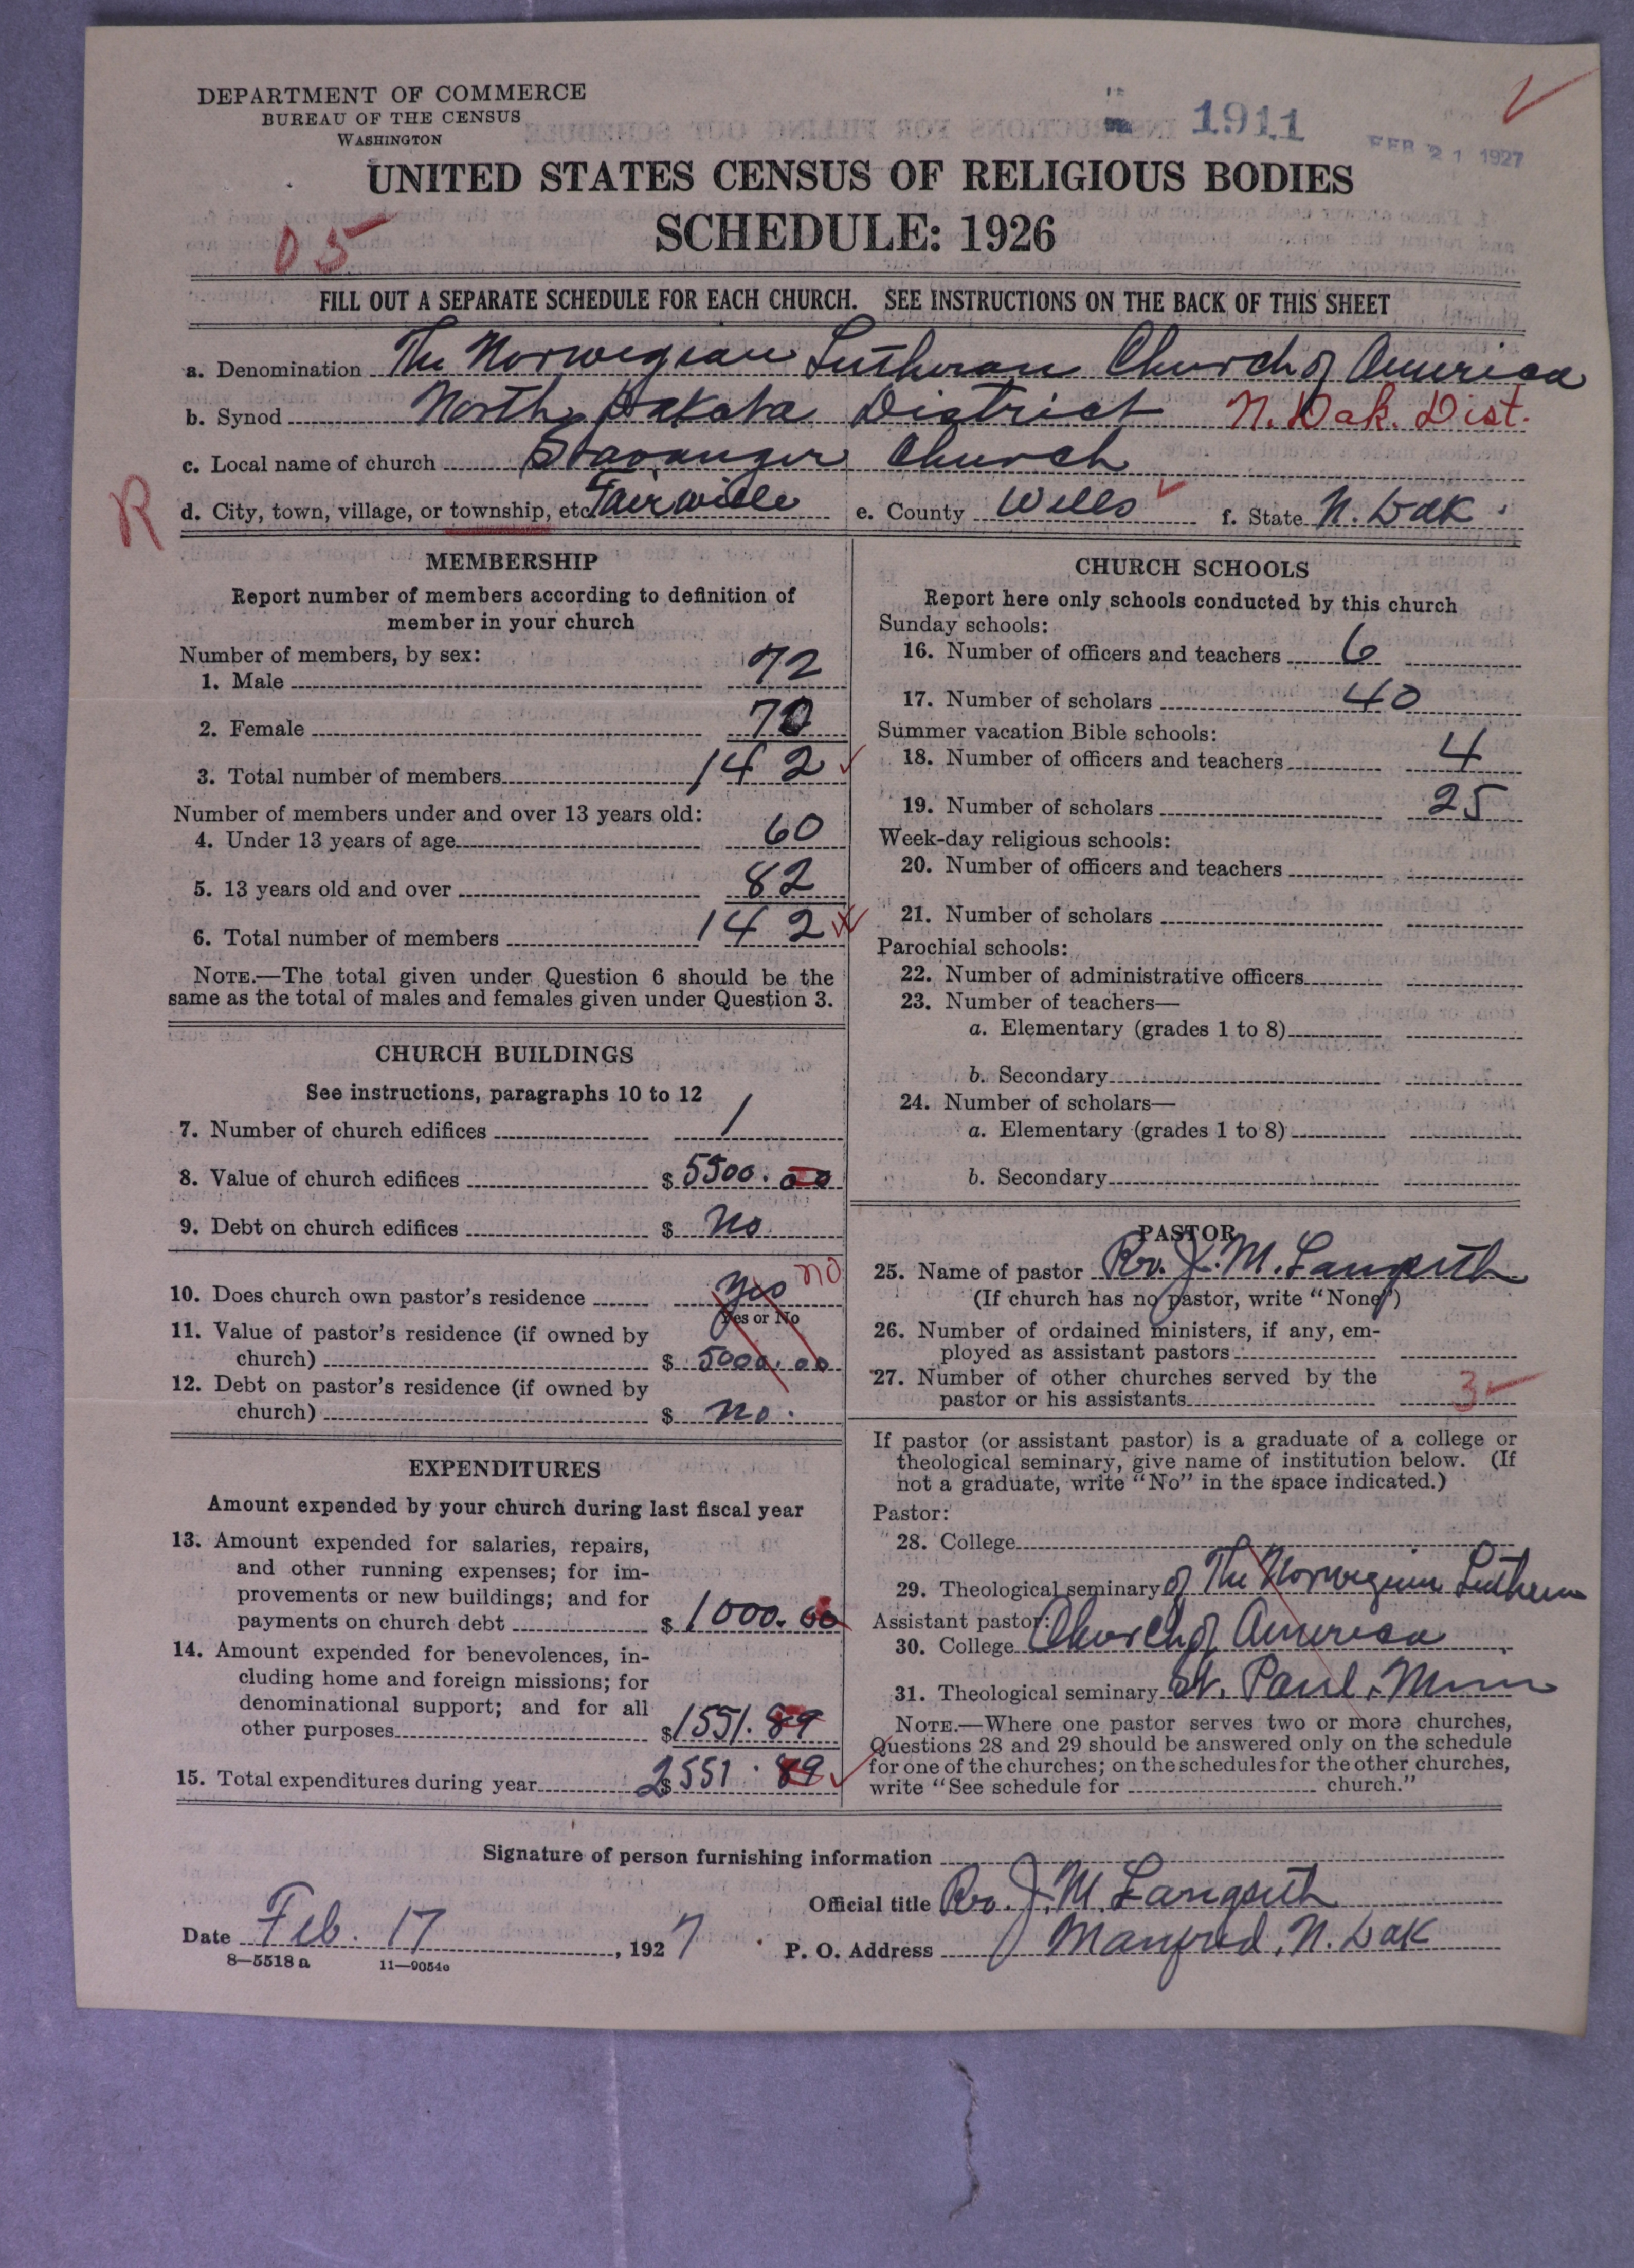 DEPARTMENT OF COMMERCE
BUREAU OF THE CENSUS
WASHINGTON
1911
FEB 21 1927
UNITED STATES CENSUS OF RELIGIOUS BODIES
SCHEDULE: 1926
05
FILL OUT A SEPARATE SCHEDULE FOR EACH CHURCH. SEE INSTRUCTIONS ON THE BACK OF THIS SHEET
a. Denomination The Norwegian Lutheran Church of America
b. Synod North Dakota District N. Dak. Dist.
c. Local name of church Stavanger Church
R
d. City, town, village, or township, etc. Fairville e. County Wells f. State N. Dak.
MEMBERSHIP
Report number of members according to definition of
member in your church
Number of members, by sex:
1. Male 72
2. Female 70
3. Total number of members 142
Number of members under and over 13 years old:
4. Under 13 years of age 60
5. 13 years old and over 82
6. Total number of members 142
NOTE.—The total given under Question 6 should be the
same as the total of males and females given under Question 3.
CHURCH BUILDINGS
See instructions, paragraphs 10 to 12
7. Number of church edifices 1
8. Value of church edifices $ 5500.00
9. Debt on church edifices $ No
10. Does church own pastor's residence Yes no
Yes or No
11. Value of pastor's residence (if owned by
church) $ 5000.00
12. Debt on pastor's residence (if owned by
church) $ No.
EXPENDITURES
Amount expended by your church during last fiscal year
13. Amount expended for salaries, repairs,
and other running expenses; for im-
provements or new buildings; and for
payments on church debt $ 1000.00
14. Amount expended for benevolences, in-
cluding home and foreign missions; for
denominational support; and for all
other purposes $ 1551.89
15. Total expenditures during year $ 2551.89
CHURCH SCHOOLS
Report here only schools conducted by this church
Sunday schools:
16. Number of officers and teachers 6
17. Number of scholars 40
Summer vacation Bible schools:
18. Number of officers and teachers 4
19. Number of scholars 25
Week-day religious schools:
20. Number of officers and teachers
21. Number of scholars
Parochial schools:
22. Number of administrative officers
23. Number of teachers—
a. Elementary (grades 1 to 8)
b. Secondary
24. Number of scholars—
a. Elementary (grades 1 to 8)
b. Secondary
PASTOR
25. Name of pastor Rev. J. M. Langseth
(If church has no pastor, write "None")
26. Number of ordained ministers, if any, em-
ployed as assistant pastors
27. Number of other churches served by the
pastor or his assistants 3
If pastor (or assistant pastor) is a graduate of a college or
theological seminary, give name of institution below. (If
not a graduate, write "No" in the space indicated.)
Pastor:
28. College
29. Theological seminary of The Norwegian Lutheran
Assistant pastor:
30. College Church of America
31. Theological seminary St. Paul, Minn
NOTE.—Where one pastor serves two or more churches,
Questions 28 and 29 should be answered only on the schedule
for one of the churches; on the schedules for the other churches,
write "See schedule for church."
Signature of person furnishing information
Official title Rev. J. M. Langseth
Date Feb. 17, 1927 P. O. Address Manfred, N. Dak
8—5518 a 11—9054o